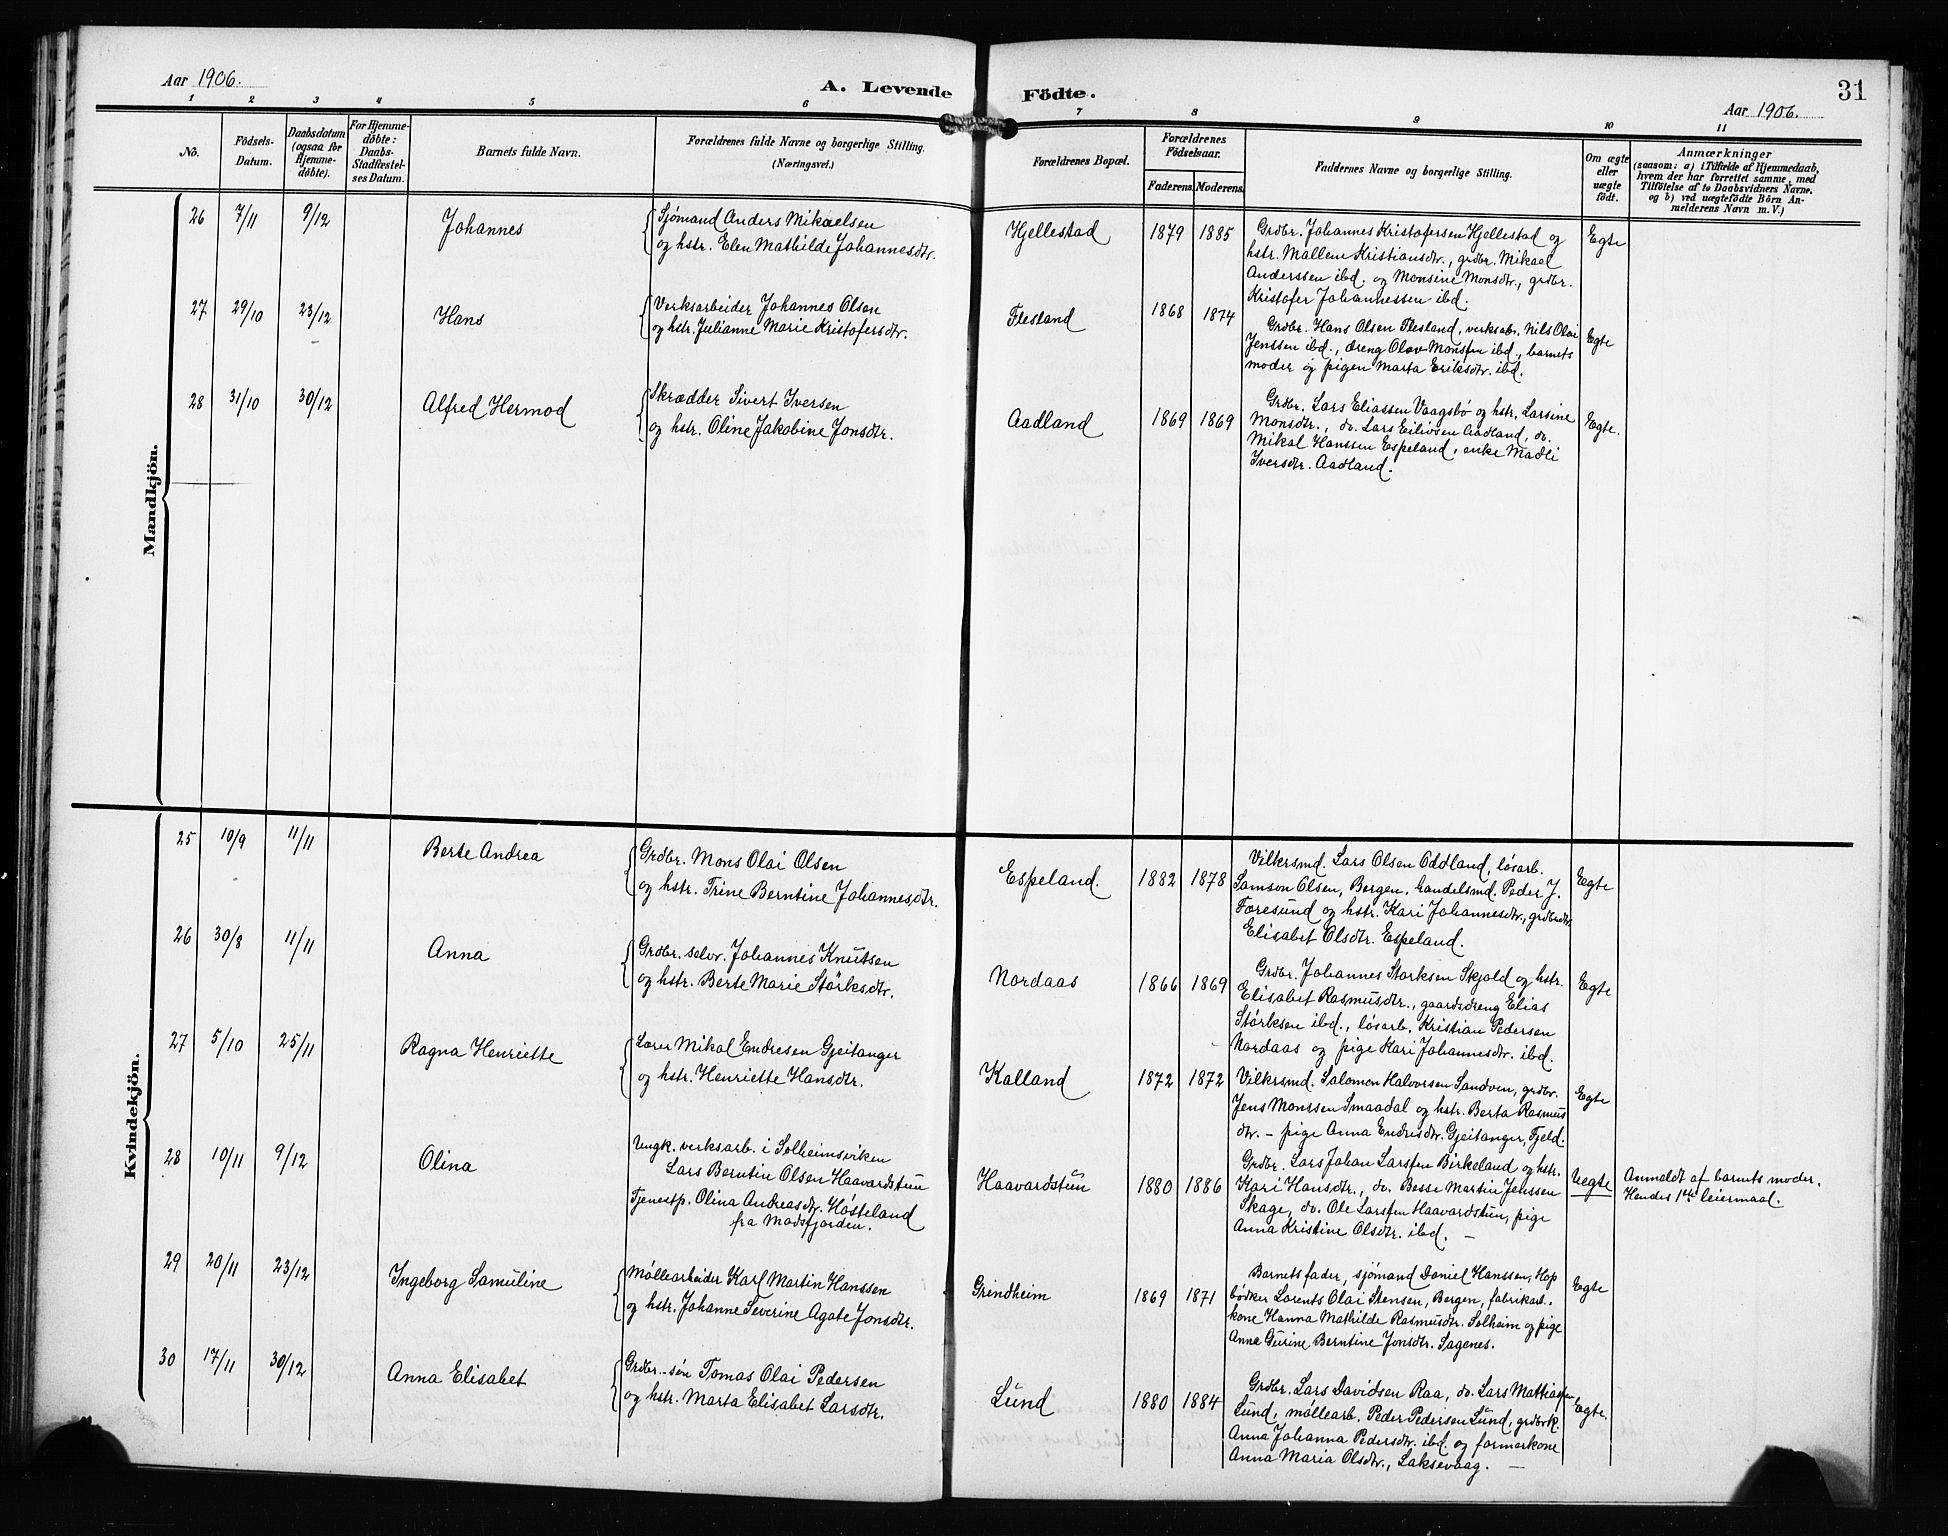 Aar 1906.
A. Levende Födte.
31
Aar 1906.
1 2 3 4 5 6 7 8 9 10 11
No.
Födsels-
Datum.
Daabsdatum
(ogsaa for
Hjemme-
döbte).
For Hjemme-
döbte:
Daabs-
Stadfæstel-
ses Datum.
Barnets fulde Navn.
Forældrenes fulde Navne og borgerlige Stilling.
(Næringsvei.)
Forældrenes Bopæl.
Forældrenes
Födselsaar.
Faderens. Moderens.
Faddernes Navne og borgerlige Stilling.
Om ægte
eller
uægte
födt.
Anmærkninger
(saasom: a) i Tilfælde af Hjemmedaab,
hvem der har forrettet samme, med
Tilföielse af to Daabsvidners Navne.
og b) ved uægtefödte Börn An-
melderens Navn m. V.)
Mandkjön.
26 7/11 9/12 Johannes
Sjömand Anders Mikaelsen
og hstr. Elen Mathilde Johannesdtr.
Hjellestad 1879 1885
Grdbr. Johannes Kristofersen Hjellestad og
hstr. Mallene Kristiansdtr., grdbr. Mikael
Anderssen ibd. og Monsine Monsdtr., grdbr.
Kristofer Johannessen ibd.
Egte
27 29/10 23/12 Hans
Verksarbeider Johannes Olsen
og hstr. Julianne Marie Kristofersdtr.
Flesland 1868 1874
Grdbr. Hans Olsen Flesland, verksab. Nils Olai
Jenssen ibd., dreng Olav Monsen ibd., barnets
moder og pigen Marta Eriksdtr. ibd.
Egte
28 31/10 30/12 Alfred Hermod
Skrædder Sivert Iversen
og hstr. Oline Jakobine Jonsdtr.
Aadland 1869 1869
Grdbr. Lars Eliassen Vaagsbø og hstr. Larsine
Monsdtr., do. Lars Eilivsen Aadland, do.
Mikal Hanssen Espeland, enke Madli
Iversdtr. Aadland.
Egte.
Kvindekjön.
25 10/9 11/11 Berte Andrea
Grdbr. Mons Olai Olsen
og hstr. Trine Berntine Johannesdtr.
Espeland. 1882 1878
Vilkrsmd. Lars Olsen Oddland, lösarb.
Samson Olsen, Bergen, handelsmd. Peder J.
Færesund og hstr. Kari Johannesdtr., grdbrdtr.
Elisabet Olsdtr. Espeland.
Egte
26 30/8 11/11 Anna
Grdbr. selv. Johannes Knutsen
og hstr. Berte Marie Störksdtr.
Nordaas 1866 1869
Grdbr. Johannes Storksen Skjold og hstr.
Elisabet Rasmusdtr., gaardsdreng Elias
Störksen ibd., lösarb. Kristian Pedersen
Nordaas og pige Kari Johannesdtr. ibd.
Egte
27 5/10 25/11 Ragna Henriette
Lærer Mikal Endresen Gjeitanger
og hstr. Henriette Hansdtr.
Kalland 1872 1872
Vilkrsmd. Salomon Halvorsen Sandven, grdbr.
Jens Monssen Smaadal og hstr. Berta Rasmus
dtr. – pige Anna Endresdtr. Gjeitanger, Fjeld.
Egte
28 10/11 9/12 Olina
Ungk. verksarb. i Solheimsviken
Lars Berntin Olsen Haavardstun
Tjenestp. Olina Andreasdtr. Høsteland
fra Masfjorden.
Haavardstun 1880 1886
Grdbr. Lars Johan Larssen Birkeland og hstr.
Kari Hansdtr., do. Besse Martin Jenssen
Skage, do. Ole Larssen Haavardstun, pige
Anna Kristine Olsdtr. ibd. –
Uegte
Anmeldt af barnets moder.
Hendes 1ste leiermaal.
29 20/11 23/12 Ingeborg Samuline
Møllearbeider Karl Martin Hanssen
og hstr. Johanne Severine Agate Jonsdtr.
Grindheim 1869 1871
Barnets fader, sjömand Daniel Hanssen, Hop
bödker Lorents Olai Stensen, Bergen, fabrikarb.-
kone Hanna Mathilde Rasmusdtr. Solheim og pige
Anna Gurine Berntine Jonsdtr. Sagenes.
Egte
30 17/11 30/12 Anna Elisabet
Grdbr.-sön Tomas Olai Pedersen
og hstr. Marta Elisabet Larsdtr.
Lund 1880 1884
Grdbr. Lars Davidsen Raa, do. Lars Mattiassen
Lund, möllearb. Peder Pedersen Lund, grdbrk.
Anna Johanna Pedersdtr. ibd. og formerkone
Anna Maria Olsdtr., Laksevaag. –
Egte.